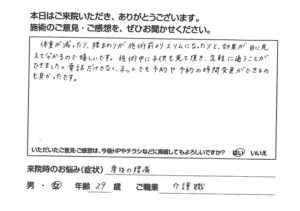 本日はご来院いただき、ありがとうございます。
施術のご意見・ご感想を、ぜひお聞かせください。
体重が減ったり、腰まわりが施術前よりスリムになったりと、効果が目に見えて分かるので嬉しいです。施術中に子供も見て頂き、気軽に通うことができました。電話だけでなく、ネットでも予約や予約の時間変更ができるのも良かったです。
いただいたご意見・ご感想は、今後HPやチラシなどに掲載してもよろしいですか? はい いいえ
来院時のお悩み(症状) 産後の腰痛
男・女 年齢 29 歳 ご職業 介護職